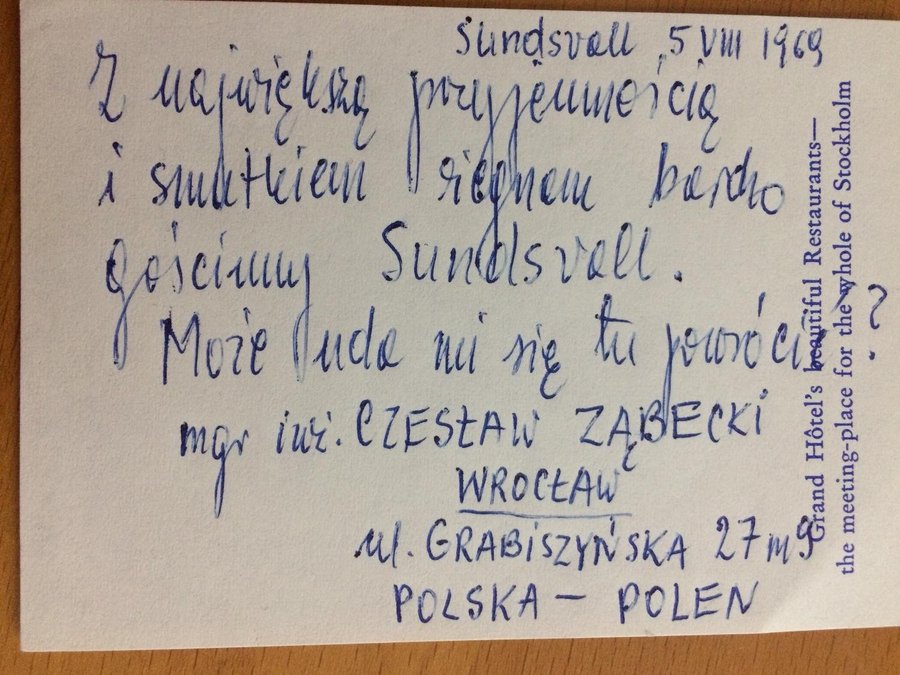 Sundsvall, 5 VIII 1969
Z największą przyjemnością
i smutkiem żegnam bardzo
gościnny Sundsvall.
Może uda mi się tu powrócić?
mgr inż. CZESŁAW ZĄBECKI
WROCŁAW
ul. GRABISZYŃSKA 27 m 9
POLSKA – POLEN
Grand Hôtel's beautiful Restaurants—
the meeting-place for the whole of Stockholm